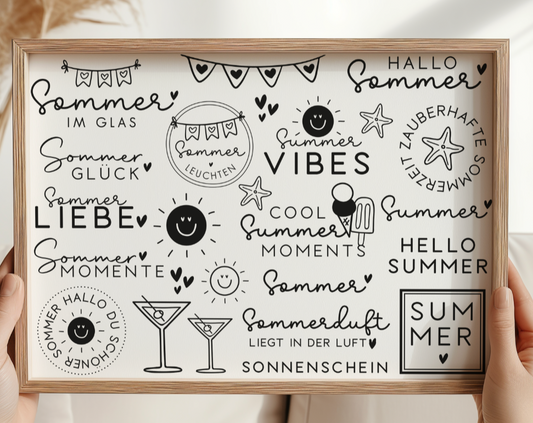 Sommer
IM GLAS
HALLO
Sommer
Sommer
GLÜCK
Sommer
LEUCHTEN
Summer
VIBES
ZAUBERHAFTE SOMMERZEIT
Sommer
LIEBE
COOL
Summer
MOMENTS
Summer
Sommer
MOMENTE
HELLO
SUMMER
Sommer
HALLO DU SCHÖNER SOMMER
Sommerduft
LIEGT IN DER LUFT
SONNENSCHEIN
SUM
MER